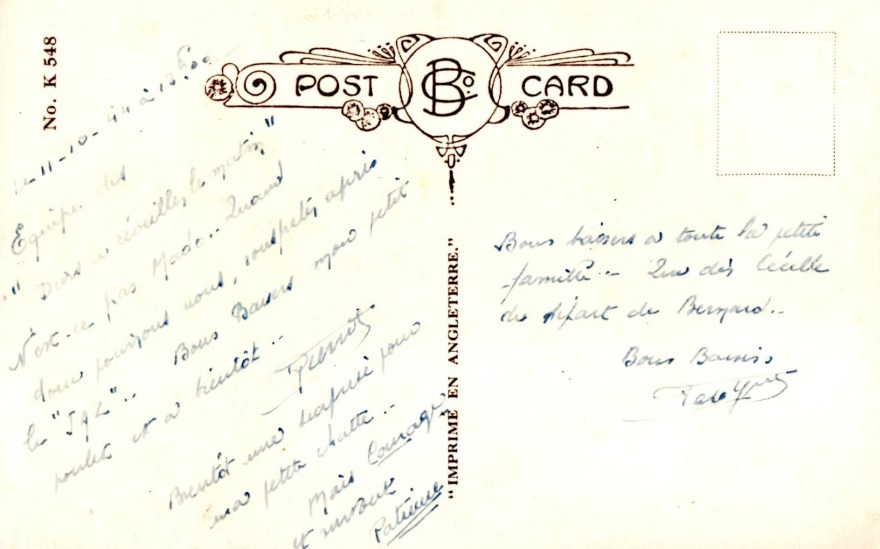 No. K 548
POST CARD
BCo.
le 11-10-44 à
Equipe des
" Durs a réveilles le matin "
N'est-ce pas Mado.. Quand
donc pourrons nous, rouspeter après
le "JAZ".. Bons Baisers mon petit
poulet et a bientôt..
Pierrot
Bientôt une pour
ma petite chatte..
Mais Courage
et surtout
Patience
"IMPRIME EN ANGLETERRE."
Bons baisers a toute la petite
famille..
du départ de Bernard..
Bons Baisers